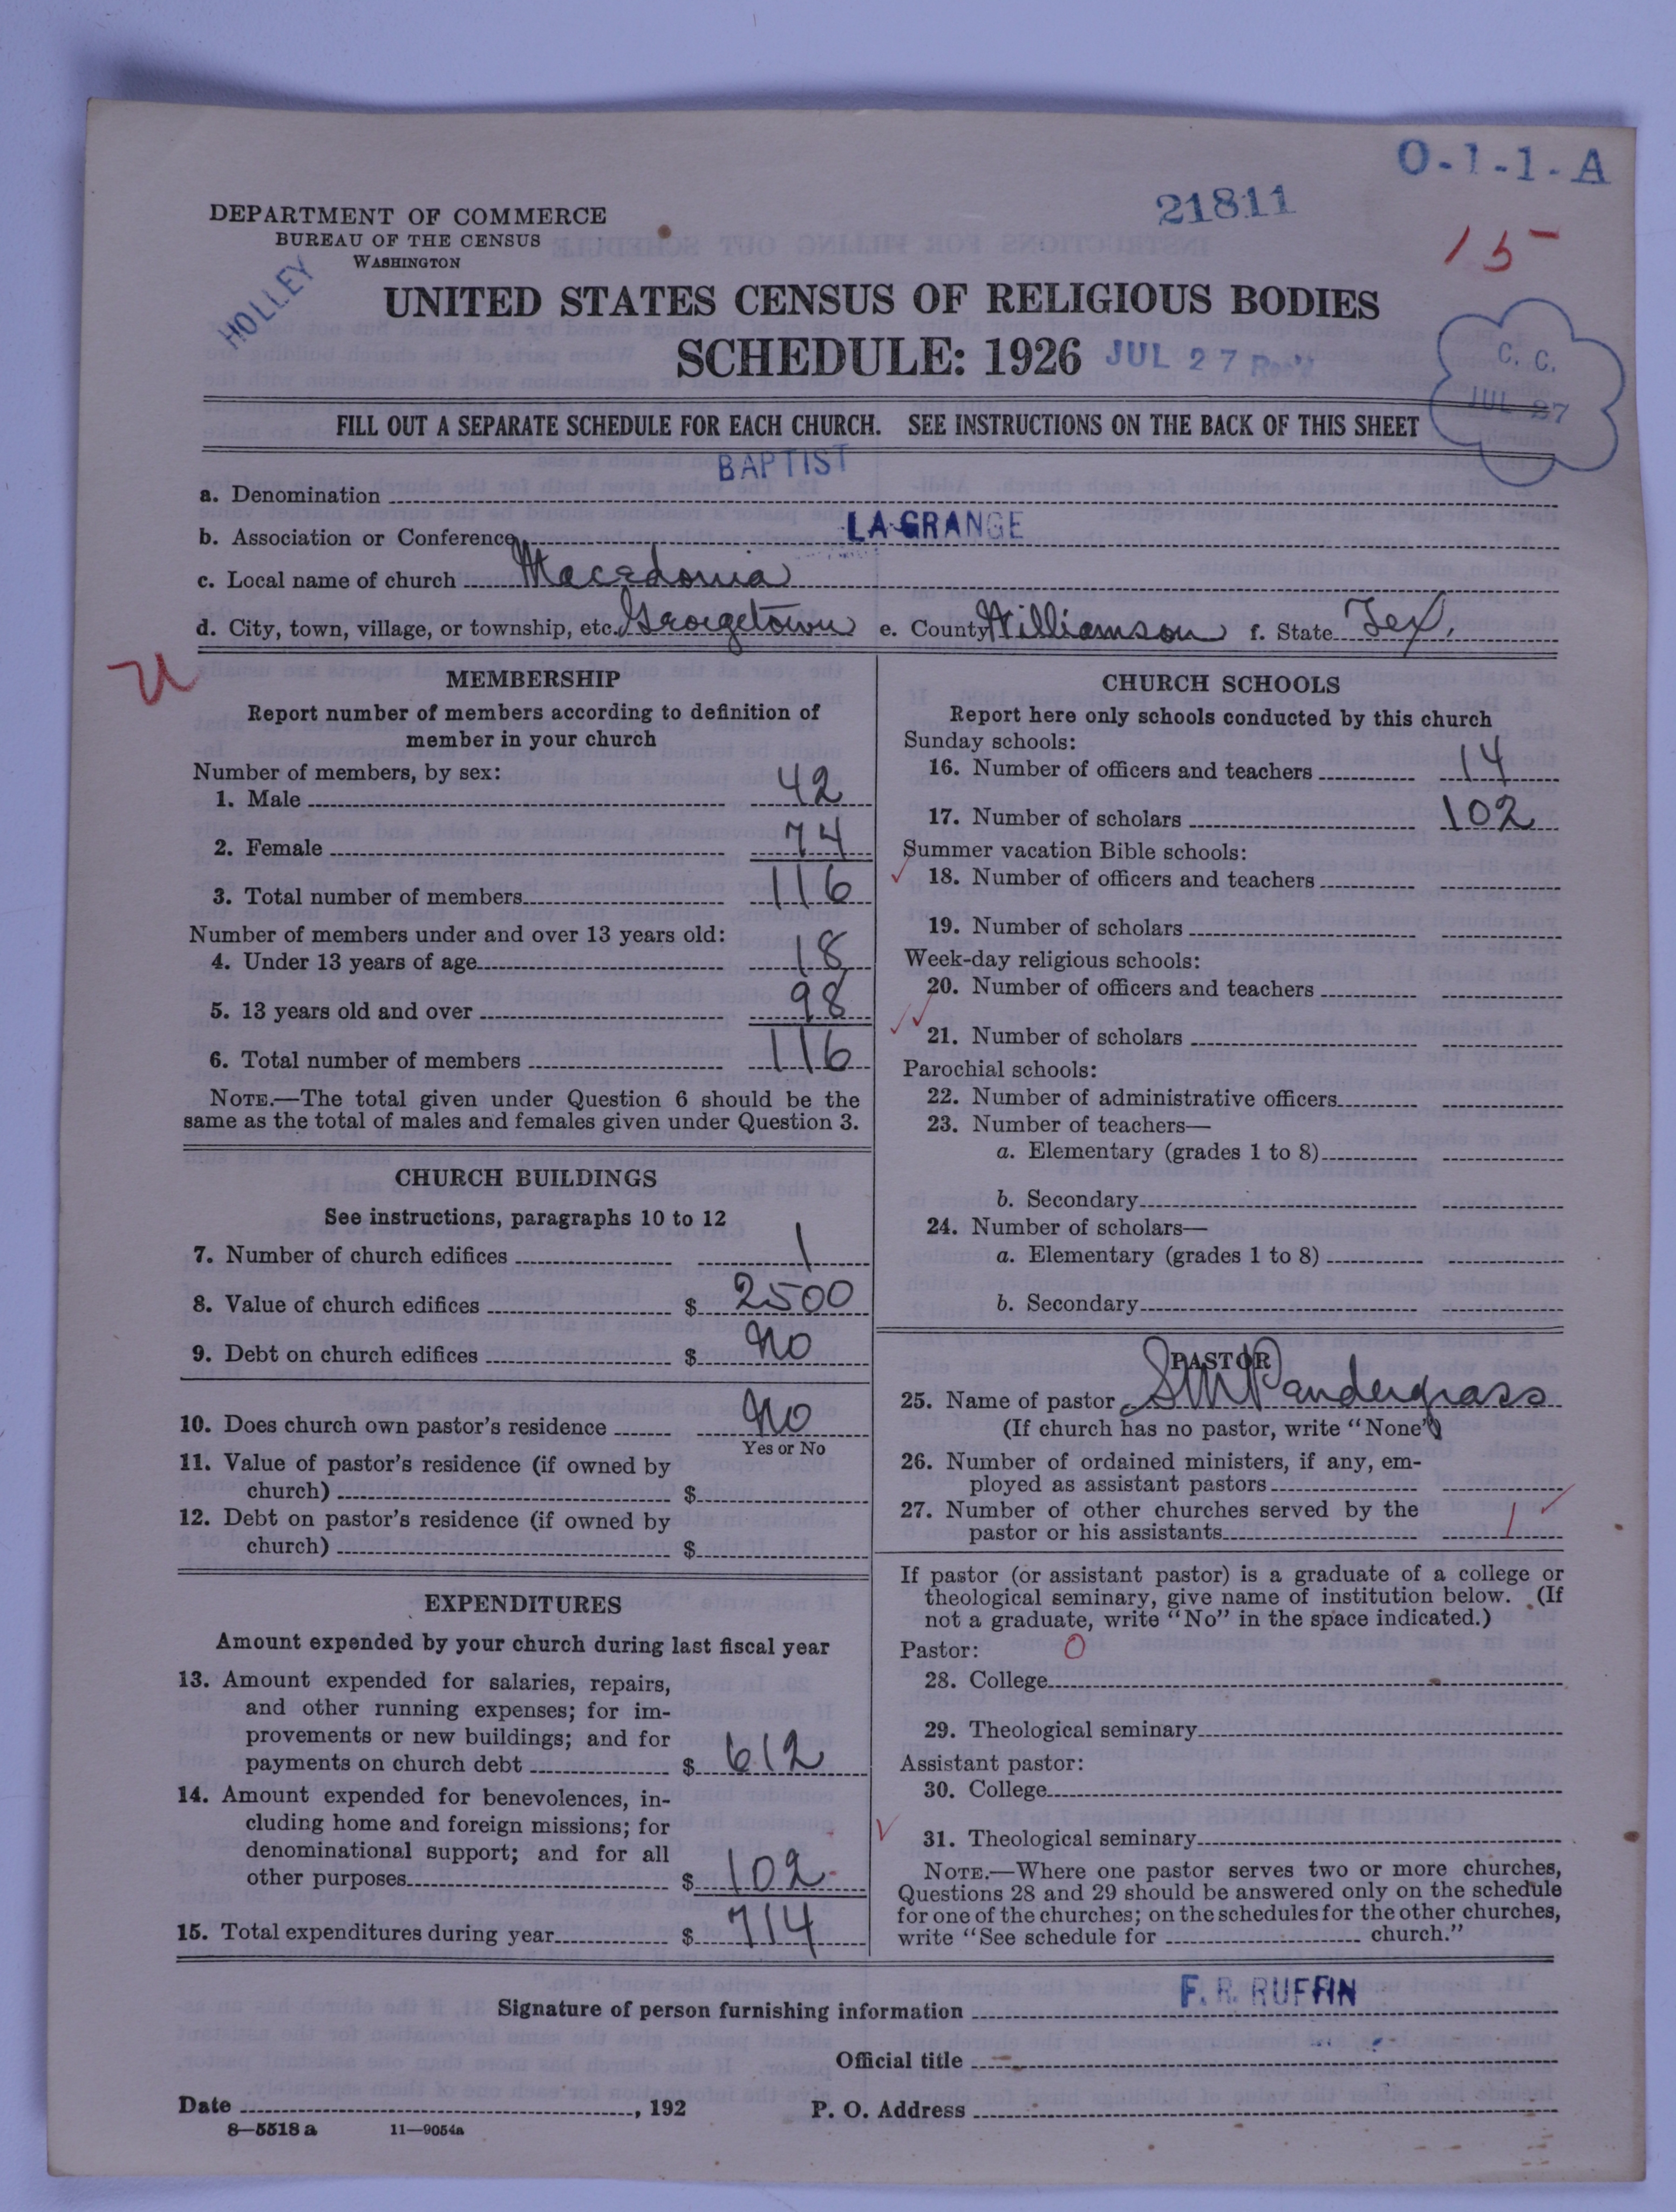 O-1-1-A
21811
15
DEPARTMENT OF COMMERCE
BUREAU OF THE CENSUS
WASHINGTON
HOLLEY
UNITED STATES CENSUS OF RELIGIOUS BODIES
SCHEDULE: 1926 JUL 27 Rec'd
C. C.
JUL 27
FILL OUT A SEPARATE SCHEDULE FOR EACH CHURCH. SEE INSTRUCTIONS ON THE BACK OF THIS SHEET
a. Denomination BAPTIST
b. Association or Conference LA GRANGE
c. Local name of church Macedonia
d. City, town, village, or township, etc. Georgetown e. County Williamson f. State Tex.
U
MEMBERSHIP
Report number of members according to definition of
member in your church
Number of members, by sex:
1. Male 42
2. Female 74
3. Total number of members 116
Number of members under and over 13 years old:
4. Under 13 years of age 18
5. 13 years old and over 98
6. Total number of members 116
NOTE.—The total given under Question 6 should be the
same as the total of males and females given under Question 3.
CHURCH BUILDINGS
See instructions, paragraphs 10 to 12
7. Number of church edifices 1
8. Value of church edifices $ 2500
9. Debt on church edifices $ No
10. Does church own pastor's residence No
Yes or No
11. Value of pastor's residence (if owned by
church) $
12. Debt on pastor's residence (if owned by
church) $
EXPENDITURES
Amount expended by your church during last fiscal year
13. Amount expended for salaries, repairs,
and other running expenses; for im-
provements or new buildings; and for
payments on church debt $ 612
14. Amount expended for benevolences, in-
cluding home and foreign missions; for
denominational support; and for all
other purposes $ 102
15. Total expenditures during year $ 714
CHURCH SCHOOLS
Report here only schools conducted by this church
Sunday schools:
16. Number of officers and teachers 14
17. Number of scholars 102
Summer vacation Bible schools:
18. Number of officers and teachers
19. Number of scholars
Week-day religious schools:
20. Number of officers and teachers
21. Number of scholars
Parochial schools:
22. Number of administrative officers
23. Number of teachers—
a. Elementary (grades 1 to 8)
b. Secondary
24. Number of scholars—
a. Elementary (grades 1 to 8)
b. Secondary
PASTOR
25. Name of pastor S M Pandergrass
(If church has no pastor, write "None")
26. Number of ordained ministers, if any, em-
ployed as assistant pastors
27. Number of other churches served by the
pastor or his assistants 1
If pastor (or assistant pastor) is a graduate of a college or
theological seminary, give name of institution below. (If
not a graduate, write "No" in the space indicated.)
Pastor: 0
28. College
29. Theological seminary
Assistant pastor:
30. College
31. Theological seminary
NOTE.—Where one pastor serves two or more churches,
Questions 28 and 29 should be answered only on the schedule
for one of the churches; on the schedules for the other churches,
write "See schedule for church."
Signature of person furnishing information F. R. RUFFIN
Official title
Date , 192 P. O. Address
8—5518 a 11—9054a